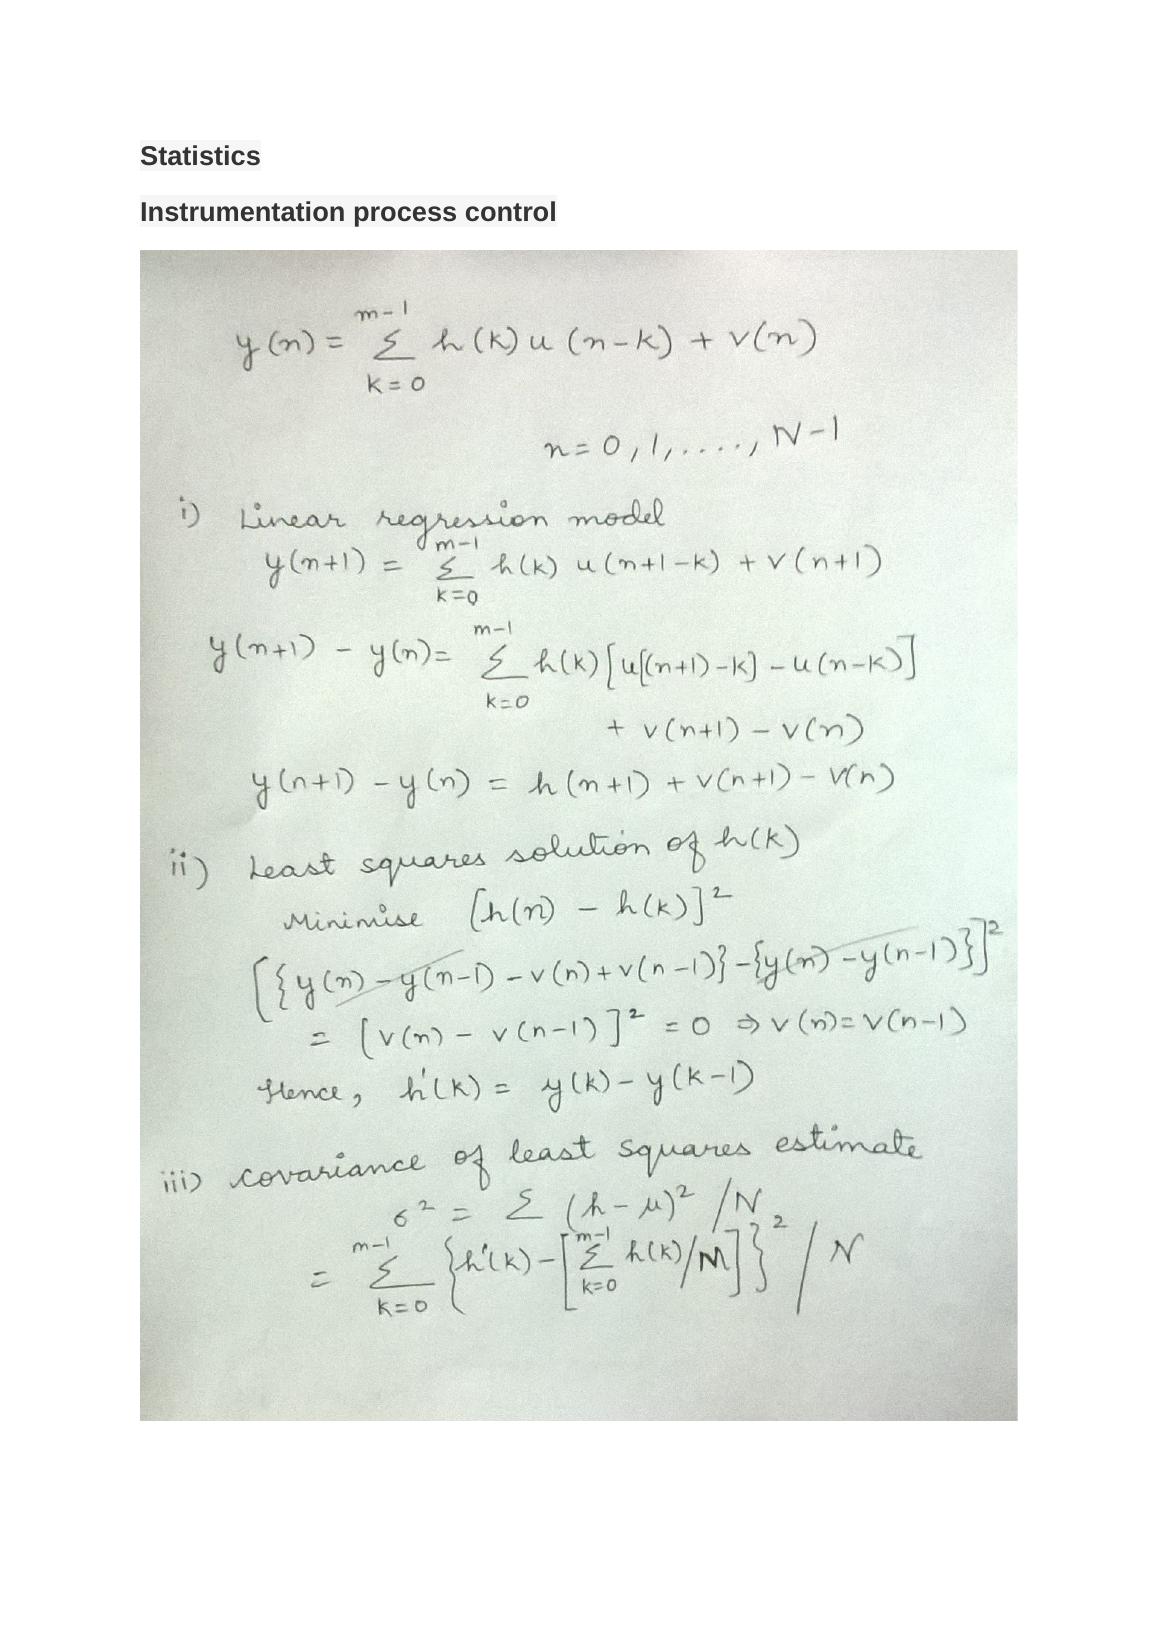 Statistics
Instrumentation process control
m-1
y(n) = Σ h(k) u (n-k) + v(n)
k=0
n=0,1,....,N-1
i) Linear regression model
m-1
y(n+1) = Σ h(k) u(n+1-k) + v(n+1)
k=0
m-1
y(n+1) - y(n)= Σ h(k)[u[(n+1)-k] - u(n-k)]
k=0
+ v(n+1) - v(n)
y(n+1) - y(n) = h(n+1) + v(n+1) - v(n)
ii) Least squares solution of h(k)
Minimise [h(n) - h(k)]²
[{y(n) - y(n-1) - v(n) + v(n-1)} - {y(n) - y(n-1)}]²
= [v(n) - v(n-1)]² = 0 ⇒ v(n) = v(n-1)
Hence, h'(k) = y(k) - y(k-1)
iii) covariance of least squares estimate
σ² = Σ (h-μ)² /N
m-1 m-1 2
= Σ {h'(k) - [Σ h(k)/M]} / N
k=0 k=0